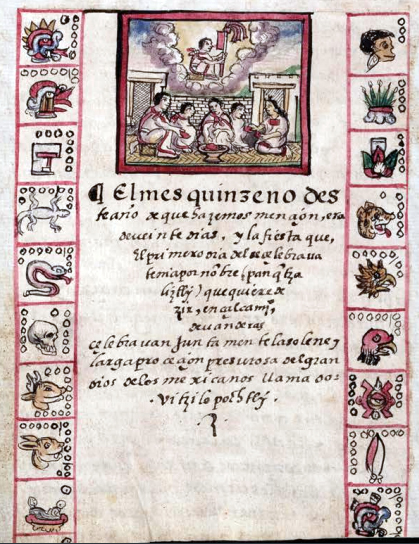 ¶ El mes quinzeno des
te año de que hazemos mençion, era
de veinte dias, y la fiesta que,
El primero dia del se çelebrava
tenia por nōbre (panq̄tza
liztly) que quiere de
zir, en alcamj̄,
de vanderas
çelebiavan Junta mente la solene y
larga proceçion presurosa del gran
dios de los mexicanos llamado
vitzilopochtly.